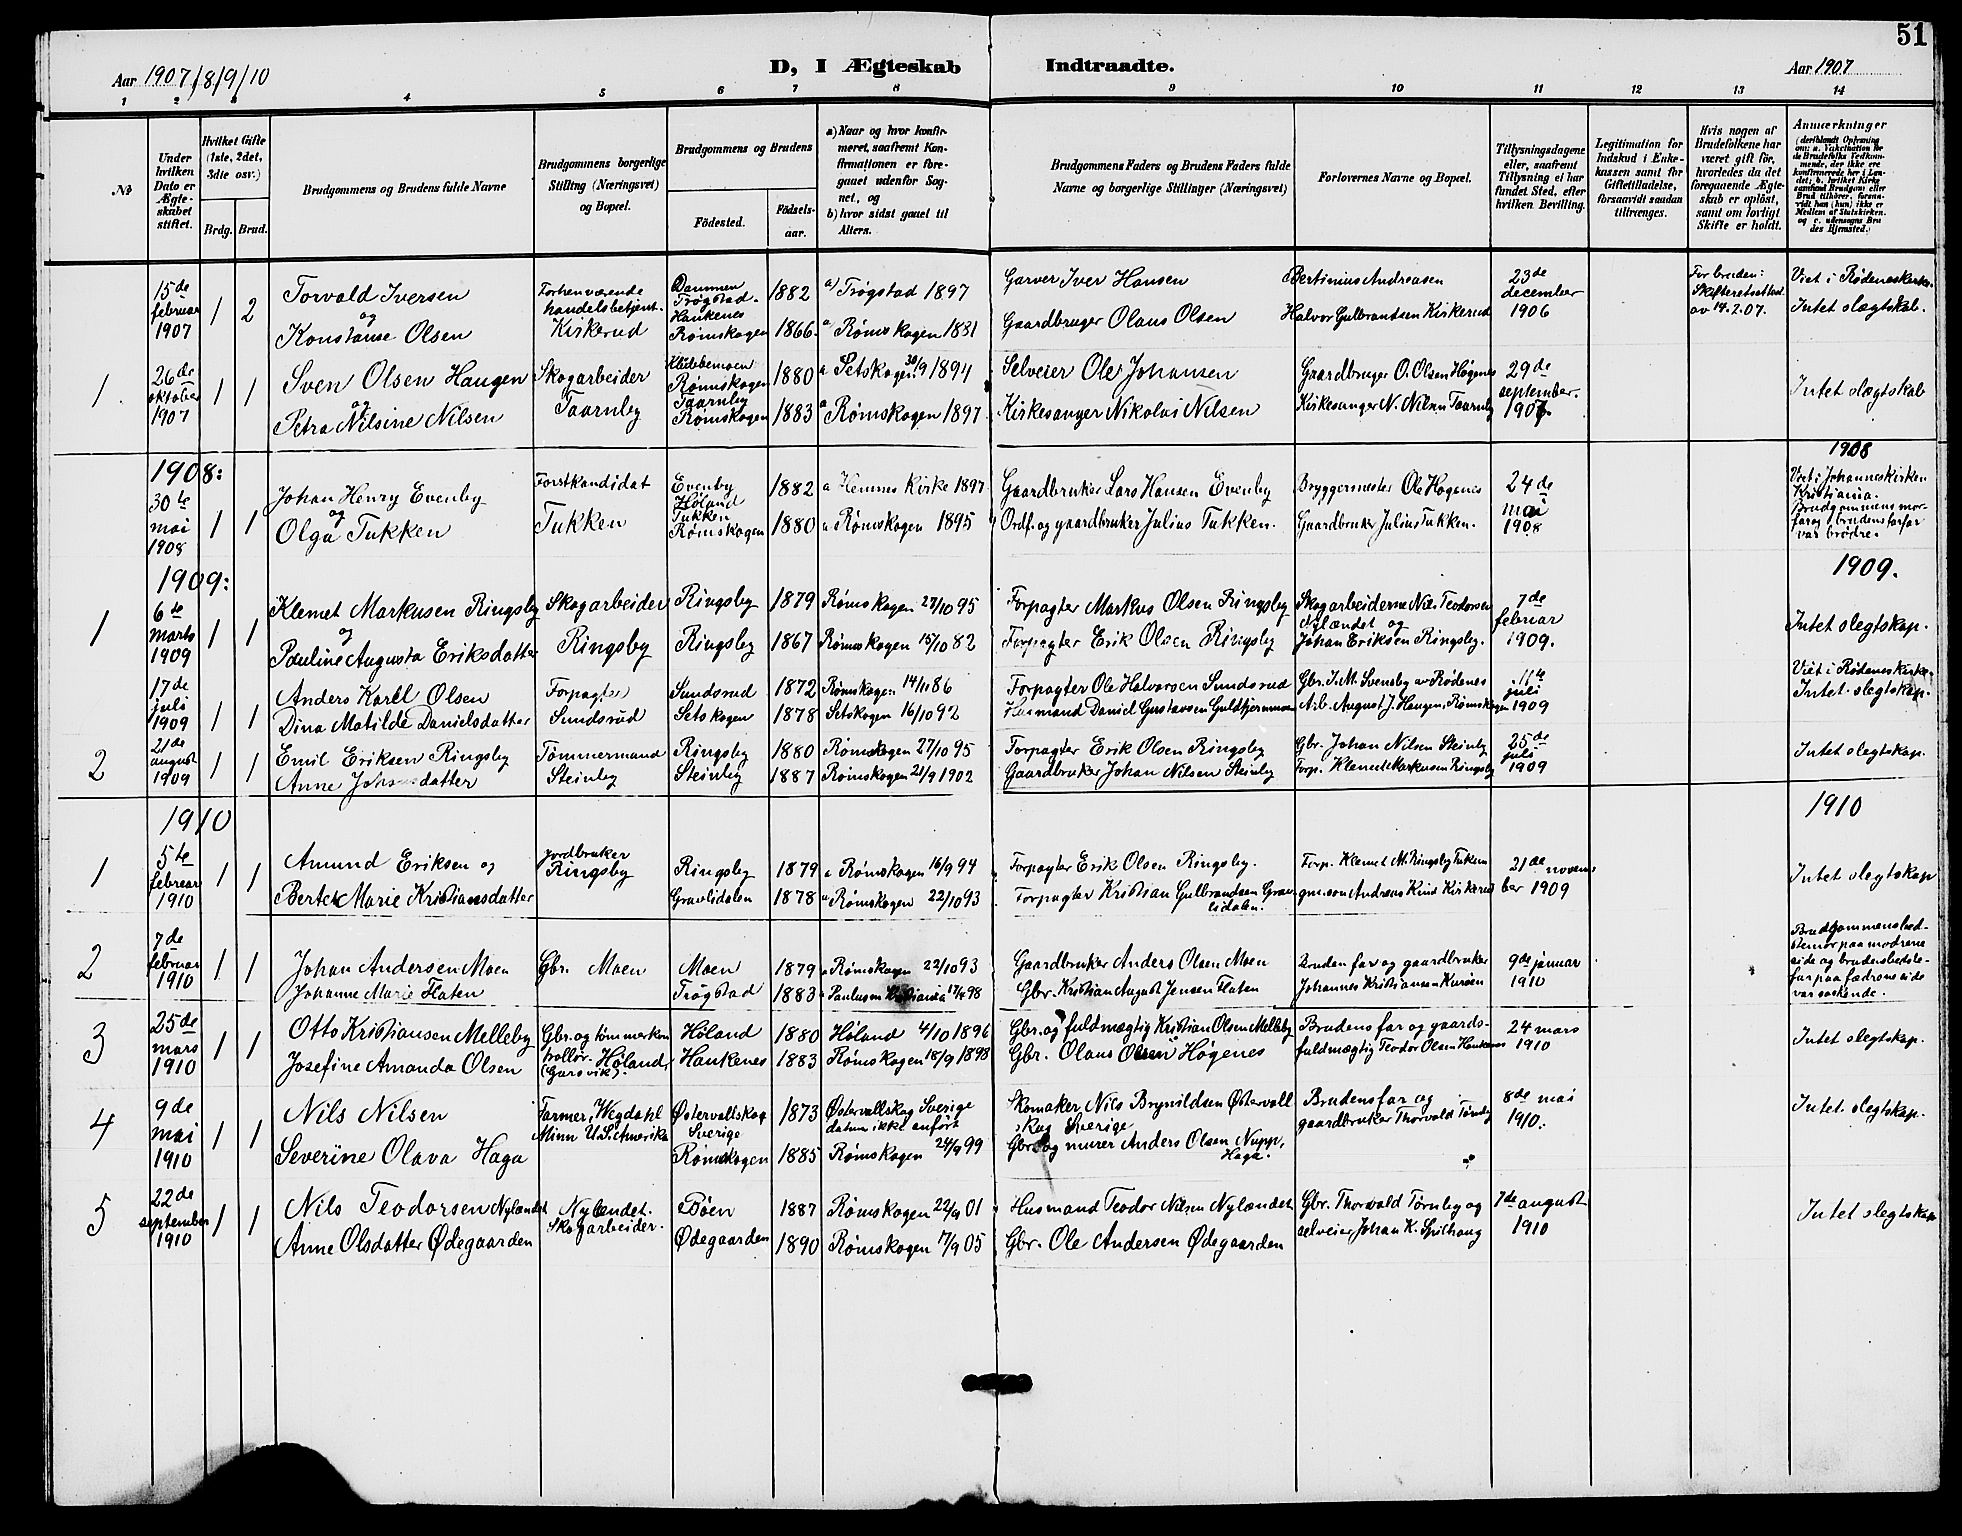 51
Aar 1907/8/9/10
D, I Ægteskab Indtraadte.
Aar 1907
1 2 3 4 5 6 7 8 9 10 11 12 13 14
№
Under hvilken Dato er Ægteskabet stiftet.
Hvilket Gifte (1ste, 2det, 3die osv.)
Brdg. Brud.
Brudgommens og Brudens fulde Navne
Brudgommens borgerlige Stilling (Næringsvei) og Bopæl.
Brudgommens og Brudens
Fødested. Fødselsaar.
a) Naar og hvor konfirmeret, saafremt Konfirmationen er foregaaet udenfor Sognet, og
b) hvor sidst gaaet til Alters.
Brudgommens Faders og Brudens Faders fulde Navne og borgerlige Stillinger (Næringsvei)
Forlovernes Navne og Bopæl.
Tillysningsdagene eller, saafremt Tillysning ei har fundet Sted, efter hvilken Bevilling.
Legitimation for Indskud i Enkekassen samt for Giftetilladelse, forsaavidt saadan tiltrænges.
Hvis nogen af Brudefolkene har været gift før, hvorledes da det foregaaende Ægteskab er opløst, samt om lovligt Skifte er holdt.
Anmærkninger
15de februar 1907 1 2 Torvald Iversen og Konstanse Olsen
Forhenværende handelsbetjent. Kirkerud
Dammen Trøgstad. 1882 a) Trøgstad 1897 Garver Iver Hansen Bertinius Andreasen
Haukenes Rømskogen 1866. a Rømskogen 1881 Gaardbruger Olaus Olsen Halvor Gulbrandsen Kirkerud
23de december 1906
For bruden: Skifteretsattest av 14.2.07.
Viet i Rødeneskirke. Intet slægtskab.
1. 26de oktober 1907 1 1 Sven Olsen Haugen og Petra Nilsine Nilsen
Skogarbeider Taarnby
Rømskogen 1880 a Setskogen 30/9 1894 Selveier Ole Johansen Gaardbruger O. Olsen Høgnes
Taarnby Rømskogen 1883 a Rømskogen 1897 Kirkesanger Nikolai Nilsen Kirkesanger N. Nilsen Taarnby
29de september. 1907
Intet slægtskab
1908: 1908
30te mai 1908 1 1 Johan Henry Evenby og Olga Tukken
Forstkandidat Tukken
Evenby Høland 1882 a Hemnes Kirke 1897 Gaardbruker Lars Hansen Evenby Bryggermester Ole Hogenes
Tukken Rømskogen 1880 a Rømskogen 1895 Ordf. og gaardbruker Julius Tukken. Gaardbruker Julius Tukken.
24de mai 1908
Viet i Johanneskirken Kristiania. Brudgommens morfar og brudens farfar var brødre.
1909: 1909.
1 6te marts 1909 1 1 Klemet Markusen Ringsby og Pauline Augusta Eriksdatter
Skogarbeider Ringsby
Ringsby 1879 Rømskogen 27/10 95 Forpagter Markus Olsen Ringsby Skogarbeiderne Nils Teodorsen Nylændet og
Ringsby 1867 Rømskogen 15/10 82 Forpagter Erik Olsen Ringsby Johan Eriksen Ringsby.
7de februar 1909.
Intet slegtskap.
17de juli 1909 1 1 Anders Karel Olsen Dina Matilde Danielsdatter
Forpagter Sundsrud
Sundsrud 1872 Rømskogen 14/11 86 Forpagter Ole Halvorsen Sundsrud Gbr. I. M. Svensby av Rødenes
Setskogen 1878 Setskogen 16/10 92 Husmand Daniel Gustavsen August J. Haugen, Rømskogen
11te juli 1909
Viet i Rødeneskirke. Intet slegtskap.
2 21de august 1909 1 1 Emil Eriksen Ringsby Anne Johansdatter
Tømmermand Steinby
Ringsby 1880 Rømskogen 27/10 95 Forpagter Erik Olsen Ringsby Gbr. Johan Nilsen Steinby
Steinby 1887 Rømskogen 21/9 1902 Gaardbruker Johan Nilsen Steinby Forp. Klemet Markusen Ringsby
25de juli 1909
Intet slegtskap.
1910 1910
1 5te februar 1910 1 1 Amund Eriksen og Berte Marie Kristiansdatter
Jordbruker Ringsby
Ringsby 1879 a Rømskogen 16/9 94 Forpagter Erik Olsen Ringsby. Forp. Klemet M. Ringsby Tukken
Gravlidalen 1878 a Rømskogen 22/10 93 Forpagter Kristian Gulbrandsen Gravlidalen. Andreas Kirkerud
21de november 1909
Intet slegtskap
2 7de februar 1910 1 1 Johan Andersen Moen Johanne Marie Flaten
Gbr. Moen
Moen 1879 a Rømskogen 22/10 93 Gaardbruker Anders Olsen Moen Bruden far og gaardbruker
Trøgstad 1883 a Paulusen Kristiania 17/4 98 Gbr. Kristian August Jensen Flaten Johannes Kristiansen Kurøen
9de januar 1910
Brudgommens bedstemor paa modrene side og brudens bedstefar paa fædrene side var søskende.
3 25de mars 1910 1 1 Otto Kristiansen Melleby Josefine Amanda Olsen
Gbr. og tømmerkontrollør. Høland (Garsvik).
Høland 1880 Høland 4/10 1896 Gbr. og fuldmægtig Kristian Olsen Melleby Brudens far og gaards-
Haukenes 1883 Rømskogen 18/9 1898 Gbr. Olaus Olsen Høgenes fuldmægtig Teodor Olsen Haukenes
24 mars 1910
Intet slegtskap.
4 9de mai 1910 1 1 Nils Nilsen Severine Olava Haga
Farmer, Wegdahl Minn U.S. Amerika
Østervallskog Sverige 1873 Østervallskog Sverige datum ikke anført Skomaker Nils Brynildsen Østervallskog Sverige Brudens far og gaardbruker Thorvald Tørnby
Rømskogen 1885 Rømskogen 24/9 99 Gbr. og murer Anders Olsen Nupp, Haga.
8de mai 1910.
Intet slegtskap.
5 22de september 1910 1 1 Nils Teodorsen Nylændet Anne Olsdatter Ødegaarden
Nylændet. Skogarbeider.
Bøen 1887 Rømskogen 22/9 01 Husmand Teodor Nilsen Nylændet Gbr. Thorvald Tørnby og
Ødegaarden 1890 Rømskogen 17/9 05 Gbr. Ole Andersen Ødegaarden selveier Johan K. Spilhaug
7de august 1910
Intet slegtskap